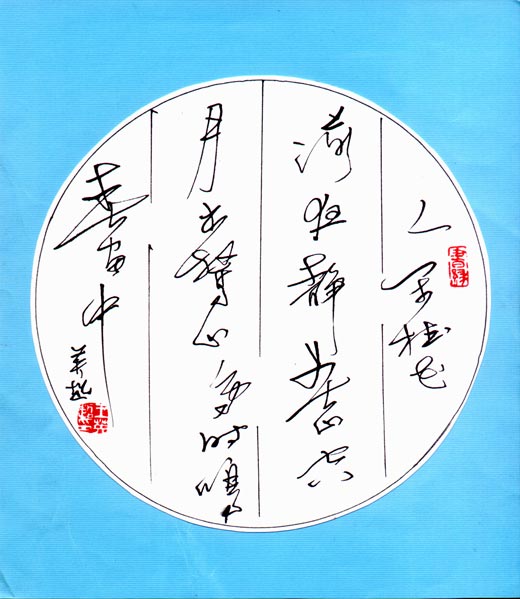 人闲桂花
落夜静春山空
月出驚山鸟时鳴
春涧中